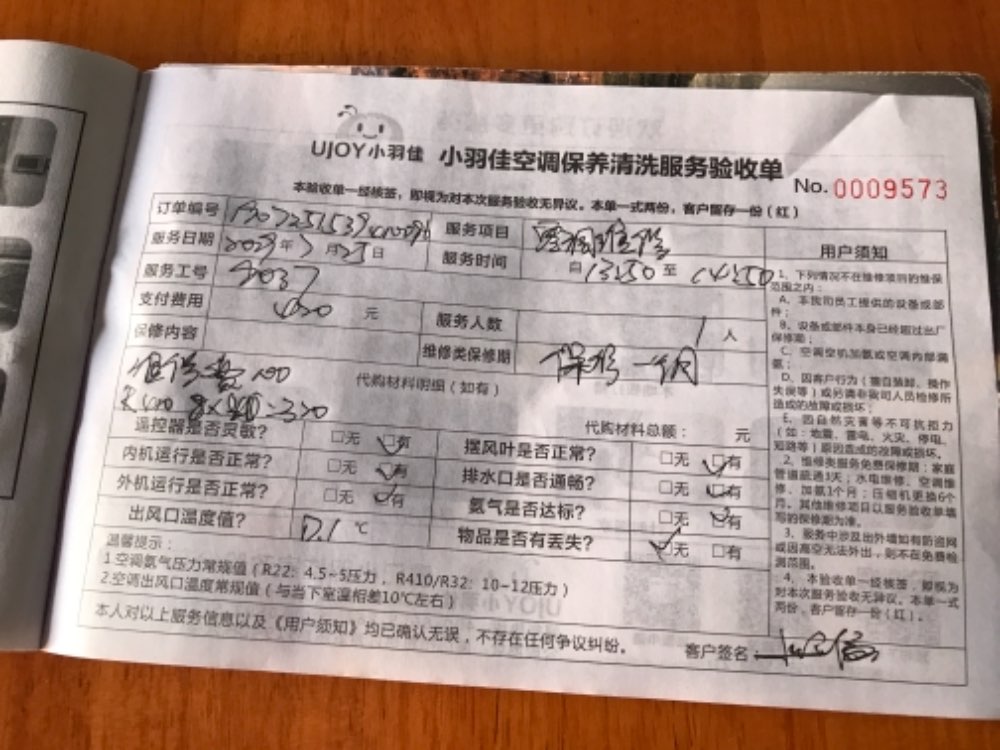 UJOY小羽佳 小羽佳空调保养清洗服务验收单
No. 0009573
本验收单一经核签，即视为对本次服务验收无异议。本单一式两份，客户留存一份（红）
订单编号
服务项目
服务日期 年 月 日
服务时间 自 13:50 至 14:50
服务工号
支付费用 420 元
服务人数 1 人
保修内容
维修类保修期 保修一个月
维修费100
代购材料明细（如有）
代购材料总额： 元
遥控器是否灵敏？ □无 □有
摆风叶是否正常？ □无 □有
内机运行是否正常？ □无 □有
排水口是否通畅？ □无 □有
外机运行是否正常？ □无 □有
氨气是否达标？ □无 □有
出风口温度值？ ℃
物品是否有丢失？ □无 □有
温馨提示：
1.空调氨气压力常规值（R22：4.5~5压力，R410/R32：10~12压力）
2.空调出风口温度常规值（与当下室温相差10℃左右）
本人对以上服务信息以及《用户须知》均已确认无误，不存在任何争议纠纷。
客户签名：
用户须知
1、下列情况不在维修项目的维保
范围之内：
A、本我司员工提供的设备或部
件；
B、设备或部件本身已经超过出厂
保修期；
C、空调空机加氨或空调内部漏
氨；
D、因客户行为（擅自装卸、操作
失误等）或另请非我司人员检修所
造成的故障或损坏；
E、因自然灾害等不可抗拒力
（如：地震、雷电、火灾、停电、
短路等）原因造成的故障或损坏。
2、维修类服务免费保修期：家庭
管道疏通3天；水电维修、空调维
修、加氨1个月；压缩机更换6个
月。其他维修项目以服务验收单填
写的保修期为准。
3、服务中涉及出外墙如有防盗网
或因高空无法外出，则不在免费检
测范围。
4、本验收单一经核签，即视为
对本次服务验收无异议。本单一式
两份，客户留存一份（红）。